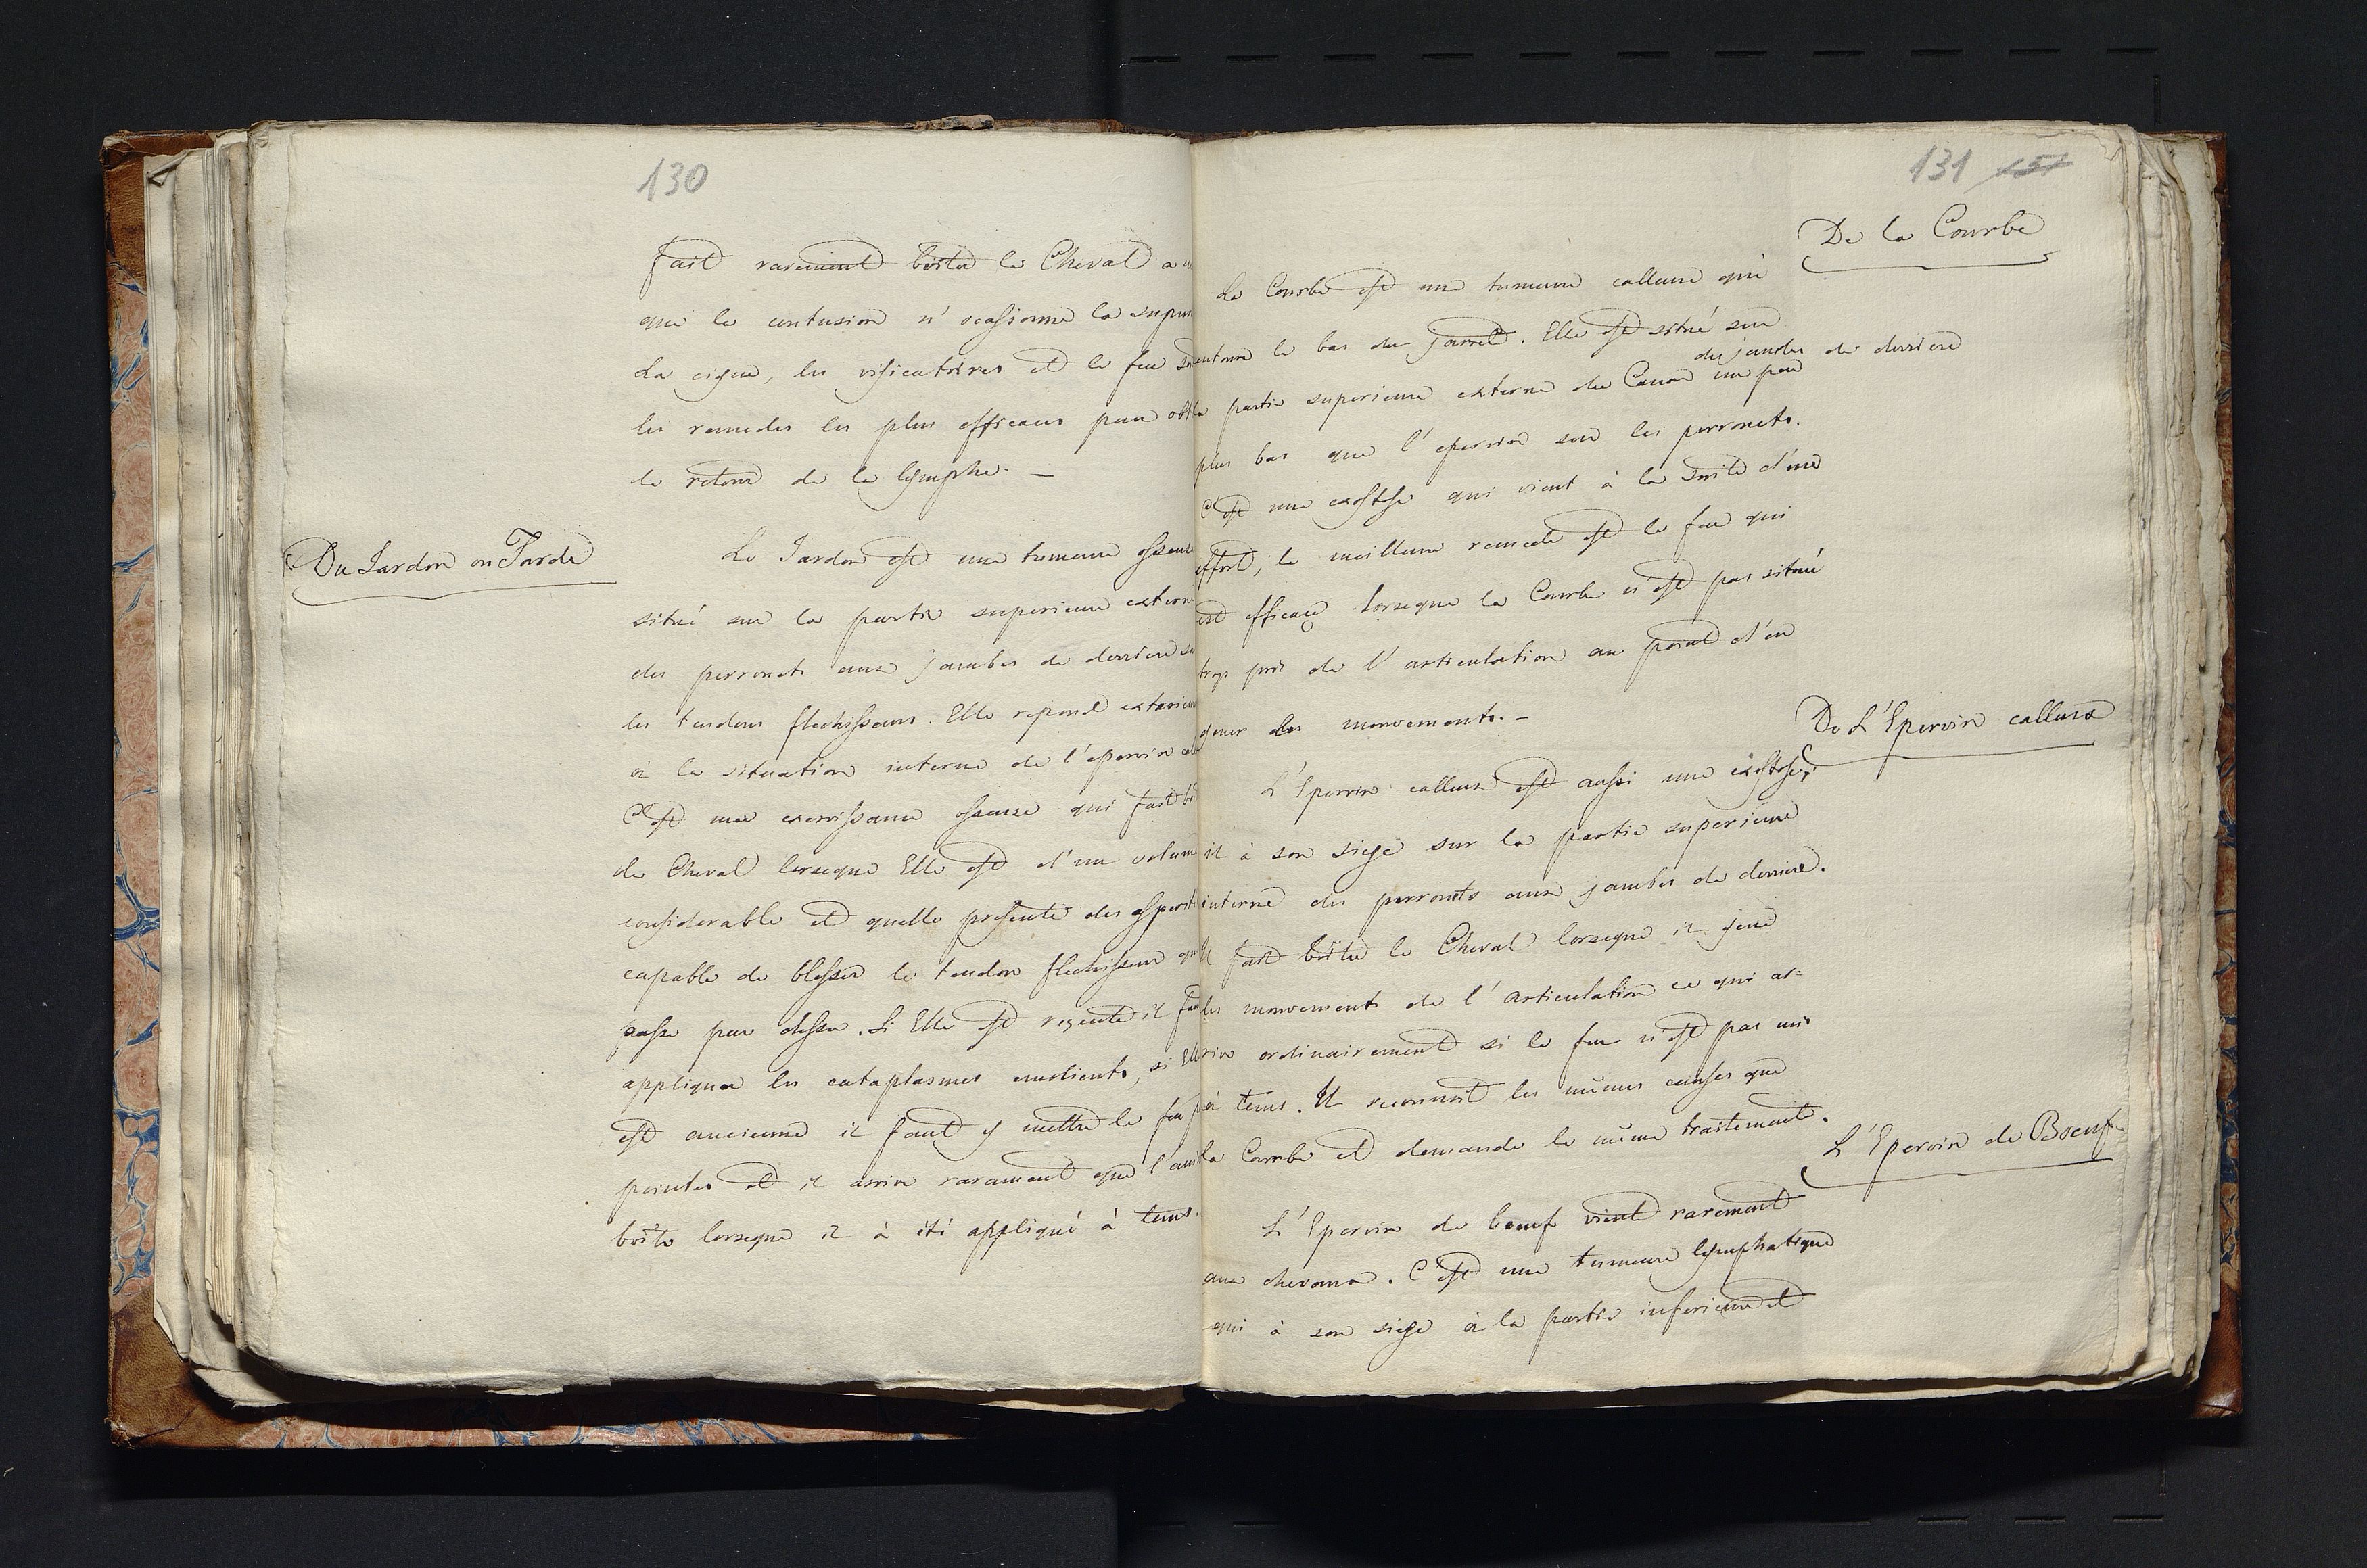 130
fait rarement boiter le Cheval a m
que la contusion n'ocasionne la supu
La cigue, les vesicatoires et le feu son
les remedes les plus efficaces pour obt
le retour de la lymphe. —
Du Jardon ou Jarde
Le Jardon est une tumeure osseuse
situé sur la partie superieure extern
des perronets aux jambes de derriere su
les tendons flechisseurs. Elle repond exterieu
à la situation interne de l'epervin cal
C'est une excroissance osseuse qui fait bo
de Cheval lorseque Elle est d'un volum
considerable et quelle presente des asperit
capable de blesser le tendon flechisseur qu
passe par dessu. Si Elle est recente il fau
appliquer les cataplasmes emolients, si Elle
est ancienne il faut y mettre le feu p
pointes et il arrive rarament que l'ani
boite lorseque il à été appliqué à tems.
131 151
De la Courbe
La Courbe est une tumeure calleuse qui
entoure le bas du jarret. Elle est situé sur
des jambes de derriere
la partie superieure externe du Canon un peu
plus bas que l'epervin sur les perronets.
C'est une exostose qui vient à la suite d'une
effort, le meilleure remede est le feu qui
est efficace lorseque la Courbe n'est pas situé
trop près de l'articulation au point d'en
gener les mouvements. —
De L'Epervin calleux
L'Epervin calleux est aussi une exostose;
il à son siege sur la partie superieure
interne des perronets aux jambes de derriere.
Il fait boiter le Cheval lorseque il gene
les mouvements de l'articulation ce qui ar=
rive ordinairement si le feu n'est pas mis
à tems. Il reconnoit les mêmes causes que
la Courbe et demande le même traitement.
L'Epervin de Boeuf
L'Epervin de boeuf vient rarement
aux chevaux. C'est une tumeure lymphatique
qui à son siege à la partie inferieure et